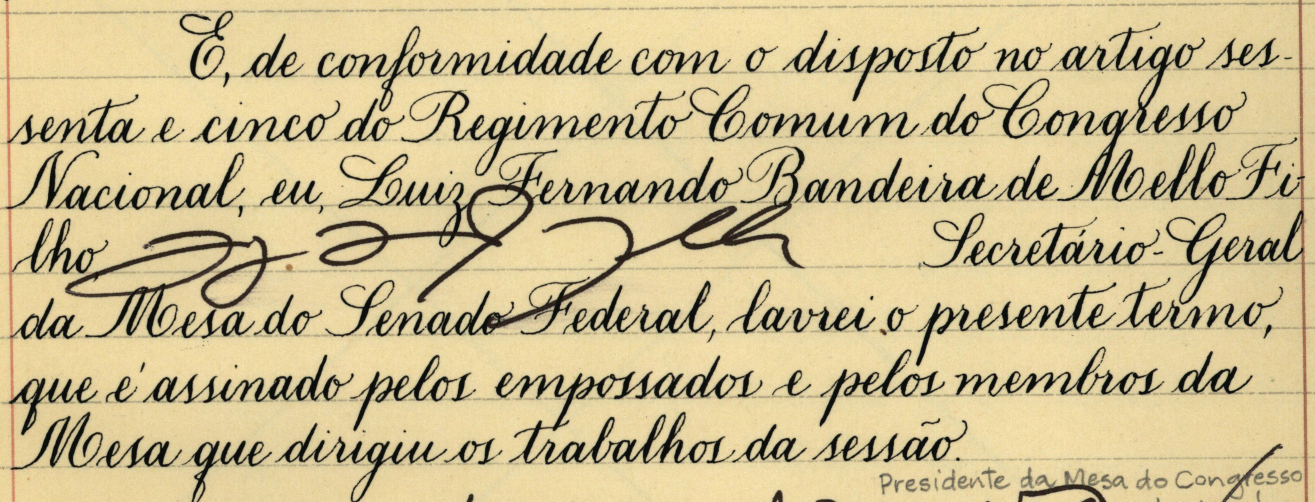 E, de conformidade com o disposto no artigo ses-
senta e cinco do Regimento Comum do Congresso
Nacional, eu, Luiz Fernando Bandeira de Mello Fi-
lho Secretário-Geral
da Mesa do Senado Federal, lavrei o presente termo,
que é assinado pelos empossados e pelos membros da
Mesa que dirigiu os trabalhos da sessão.
Presidente da Mesa do Congresso